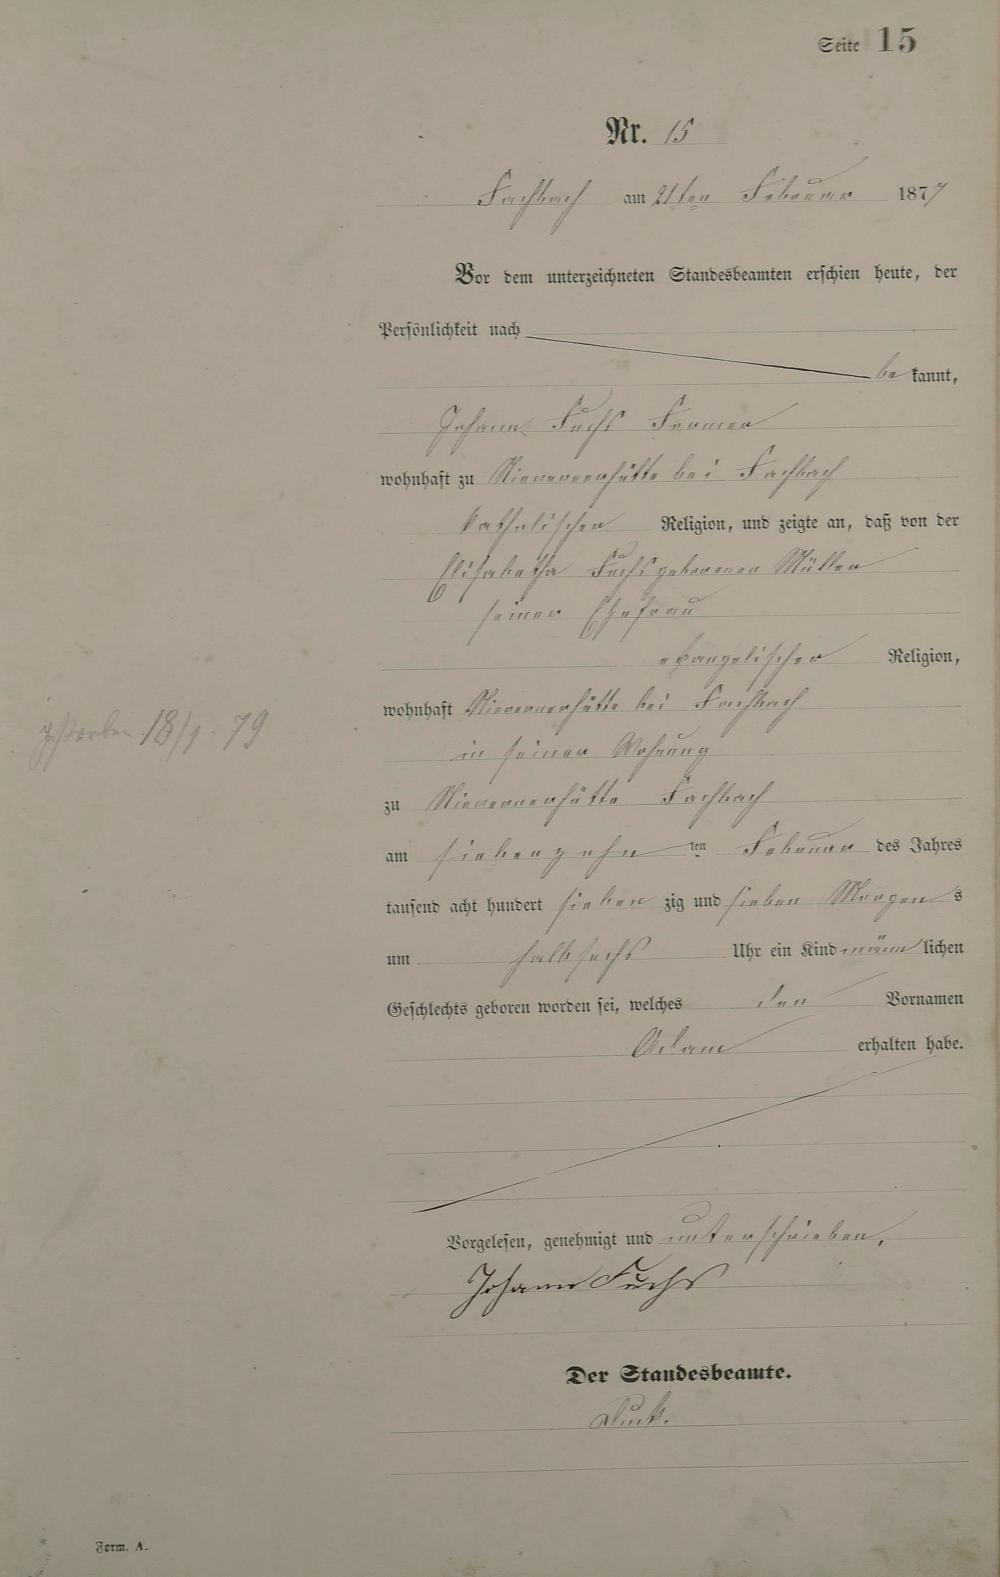 Seite 15
Nr. 15
Fachbach am 21ten Februar 1877
Vor dem unterzeichneten Standesbeamten erschien heute, der
Persönlichkeit nach
bekannt,
Johann Fuchs Former
wohnhaft zu Nievernerhütte bei Fachbach
katholischer Religion, und zeigte an, daß von der
Elisabetha Fuchs geborener Müller
seiner Ehefrau
evangelischer Religion,
wohnhaft Nievernerhütte bei Fachbach
in seiner Wohnung
zu Nievernerhütte Fachbach
am siebenzehn ten Februar des Jahres
tausend acht hundert sieben zig und sieben Morgens
um halb sechs Uhr ein Kind männlichen
Geschlechts geboren worden sei, welches den Vornamen
Adam erhalten habe.
gestorben 18/1. 79
Vorgelesen, genehmigt und unterschrieben.
Johann Fuchs
Der Standesbeamte.
Form. A.